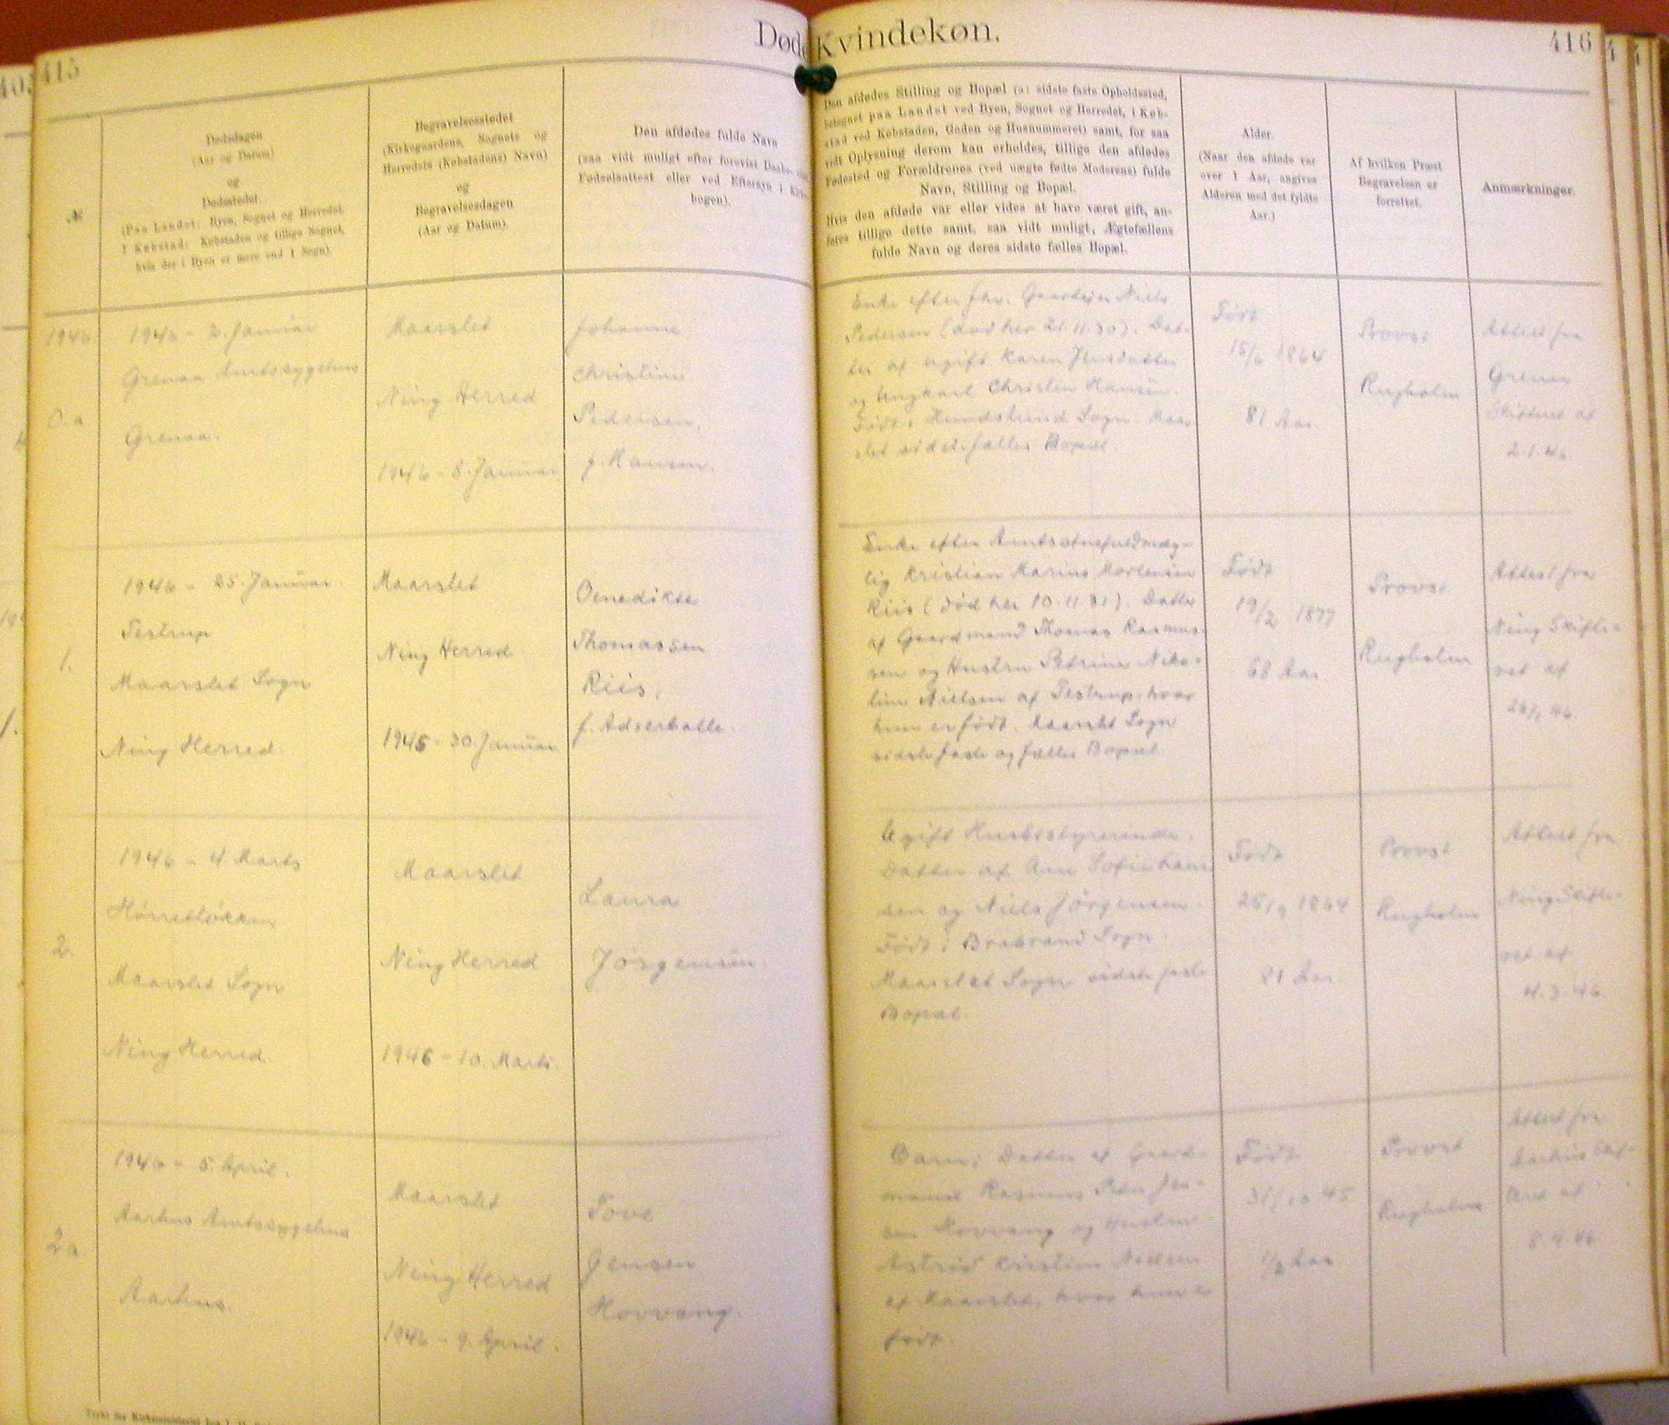 415
Døde Kvindekøn.
416
№
Dødsdagen
(Aar og Datum)
og
Dødsstedet.
(Paa Landet: Byen, Sognet og Herredet,
I Købstad: Købstaden og tillige Sognet,
hvis der i Byen er mere end 1 Sogn).
Begravelsesstedet
(Kirkegaardens, Sognets og
Herredets (Købstadens) Navn)
og
Begravelsesdagen
(Aar og Datum).
Den afdødes fulde Navn
(saa vidt muligt efter forevist Daabs-
Fødselsattest eller ved Eftersyn i Kirke-
bogen).
Den afdødes Stilling og Bopæl (o: sidste faste Opholdssted,
betegnet paa Landet ved Byen, Sognet og Herredet, i Køb-
stad ved Købstaden, Gaden og Husnummeret) samt, for saa
vidt Oplysning derom kan erholdes, tillige den afdødes
Fødested og Forældrenes (ved uægte fødte Moderens) fulde
Navn, Stilling og Bopæl.
Hvis den afdøde var eller vides at have været gift, an-
føres tillige dette samt, saa vidt muligt, Ægtefællens
fulde Navn og deres sidste fælles Bopæl.
Alder.
(Naar den afdøde var
over 1 Aar, angives
Alderen med det fyldte
Aar.)
Af hvilken Præst
Begravelsen er
forrettet.
Anmærkninger.
1946
0.a
1946 - 2. Januar
Grenaa Amtssygehus
Grenaa.
Maarslet
Ning Herred
1946 - 8. Januar
Johanne
Christine
Pedersen,
f. Hansen.
Enke efter fhv. Gaardejer Niels
Pedersen (død her 21.11.30). Dat-
ter af ugift Karen Jensdatter
og Ungkarl Christen Hansen.
Født i Hundslund Sogn. Maar-
slet sidste fælles Bopæl.
Født
15/6 1864
81 Aar
Provst
Rugholm
Attest fra
Grenaa
Skifteret af
2.1.46
1.
1946 - 25. Januar
Testrup
Maarslet Sogn
Ning Herred.
Maarslet
Ning Herred
1946 - 30. Januar
Benedikte
Thomassen
Riis,
f. Adserballe.
Enke efter Amtsstuefuldmæg-
tig Kristian Marius Mortensen
Riis (død her 10.11.31). Datter
af Gaardmand Thomas Rasmus-
sen og Hustru Petrine Niko-
line Nielsen af Testrup, hvor
hun er født. Maarslet Sogn
sidste faste og fælles Bopæl.
Født
19/2 1877
68 Aar
Provst
Rugholm
Attest fra
Ning Skifte-
ret af
26/1 46.
2.
1946 - 4 Marts
Maarslet Sogn
Ning Herred.
Maarslet
Ning Herred
1946 - 10. Marts.
Laura
Jørgensen.
Ugift Husbestyrerinde.
Datter af Ane Sofie
og Niels Jørgensen.
Født i Brabrand Sogn.
Maarslet Sogn sidste faste
Bopæl.
Født
1864
81 Aar
Provst
Rugholm
Attest fra
Ning Skifte-
ret af
4.3.46.
2a
1946 - 5. April.
Aarhus Amtssygehus
Aarhus.
Maarslet
Ning Herred
1946 - 9. April.
Tove
Jensen
Hovvang.
Barn; Datter af Gaard-
mand Rasmus Peter Jen-
sen Hovvang og Hustru
Astrid Kristine Nielsen
af Maarslet, hvor hun er
født.
Født
31/10 45
1/2 Aar
Provst
Rugholm
Attest fra
Aarhus Skif-
teret af
8.4.46